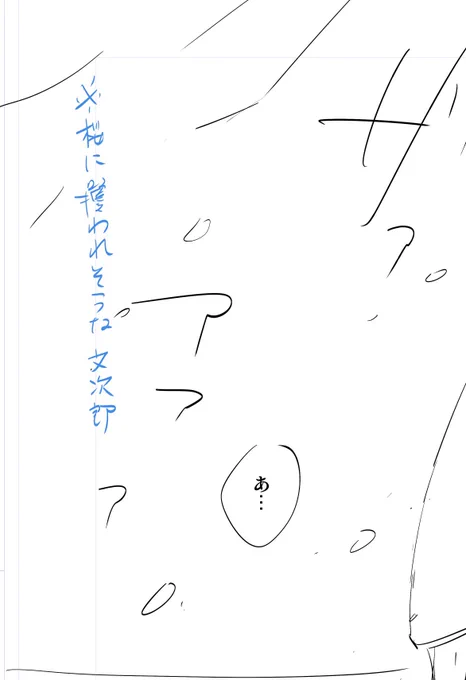 ザァァァァ
あ…
※桜に攫われそうな文次郎